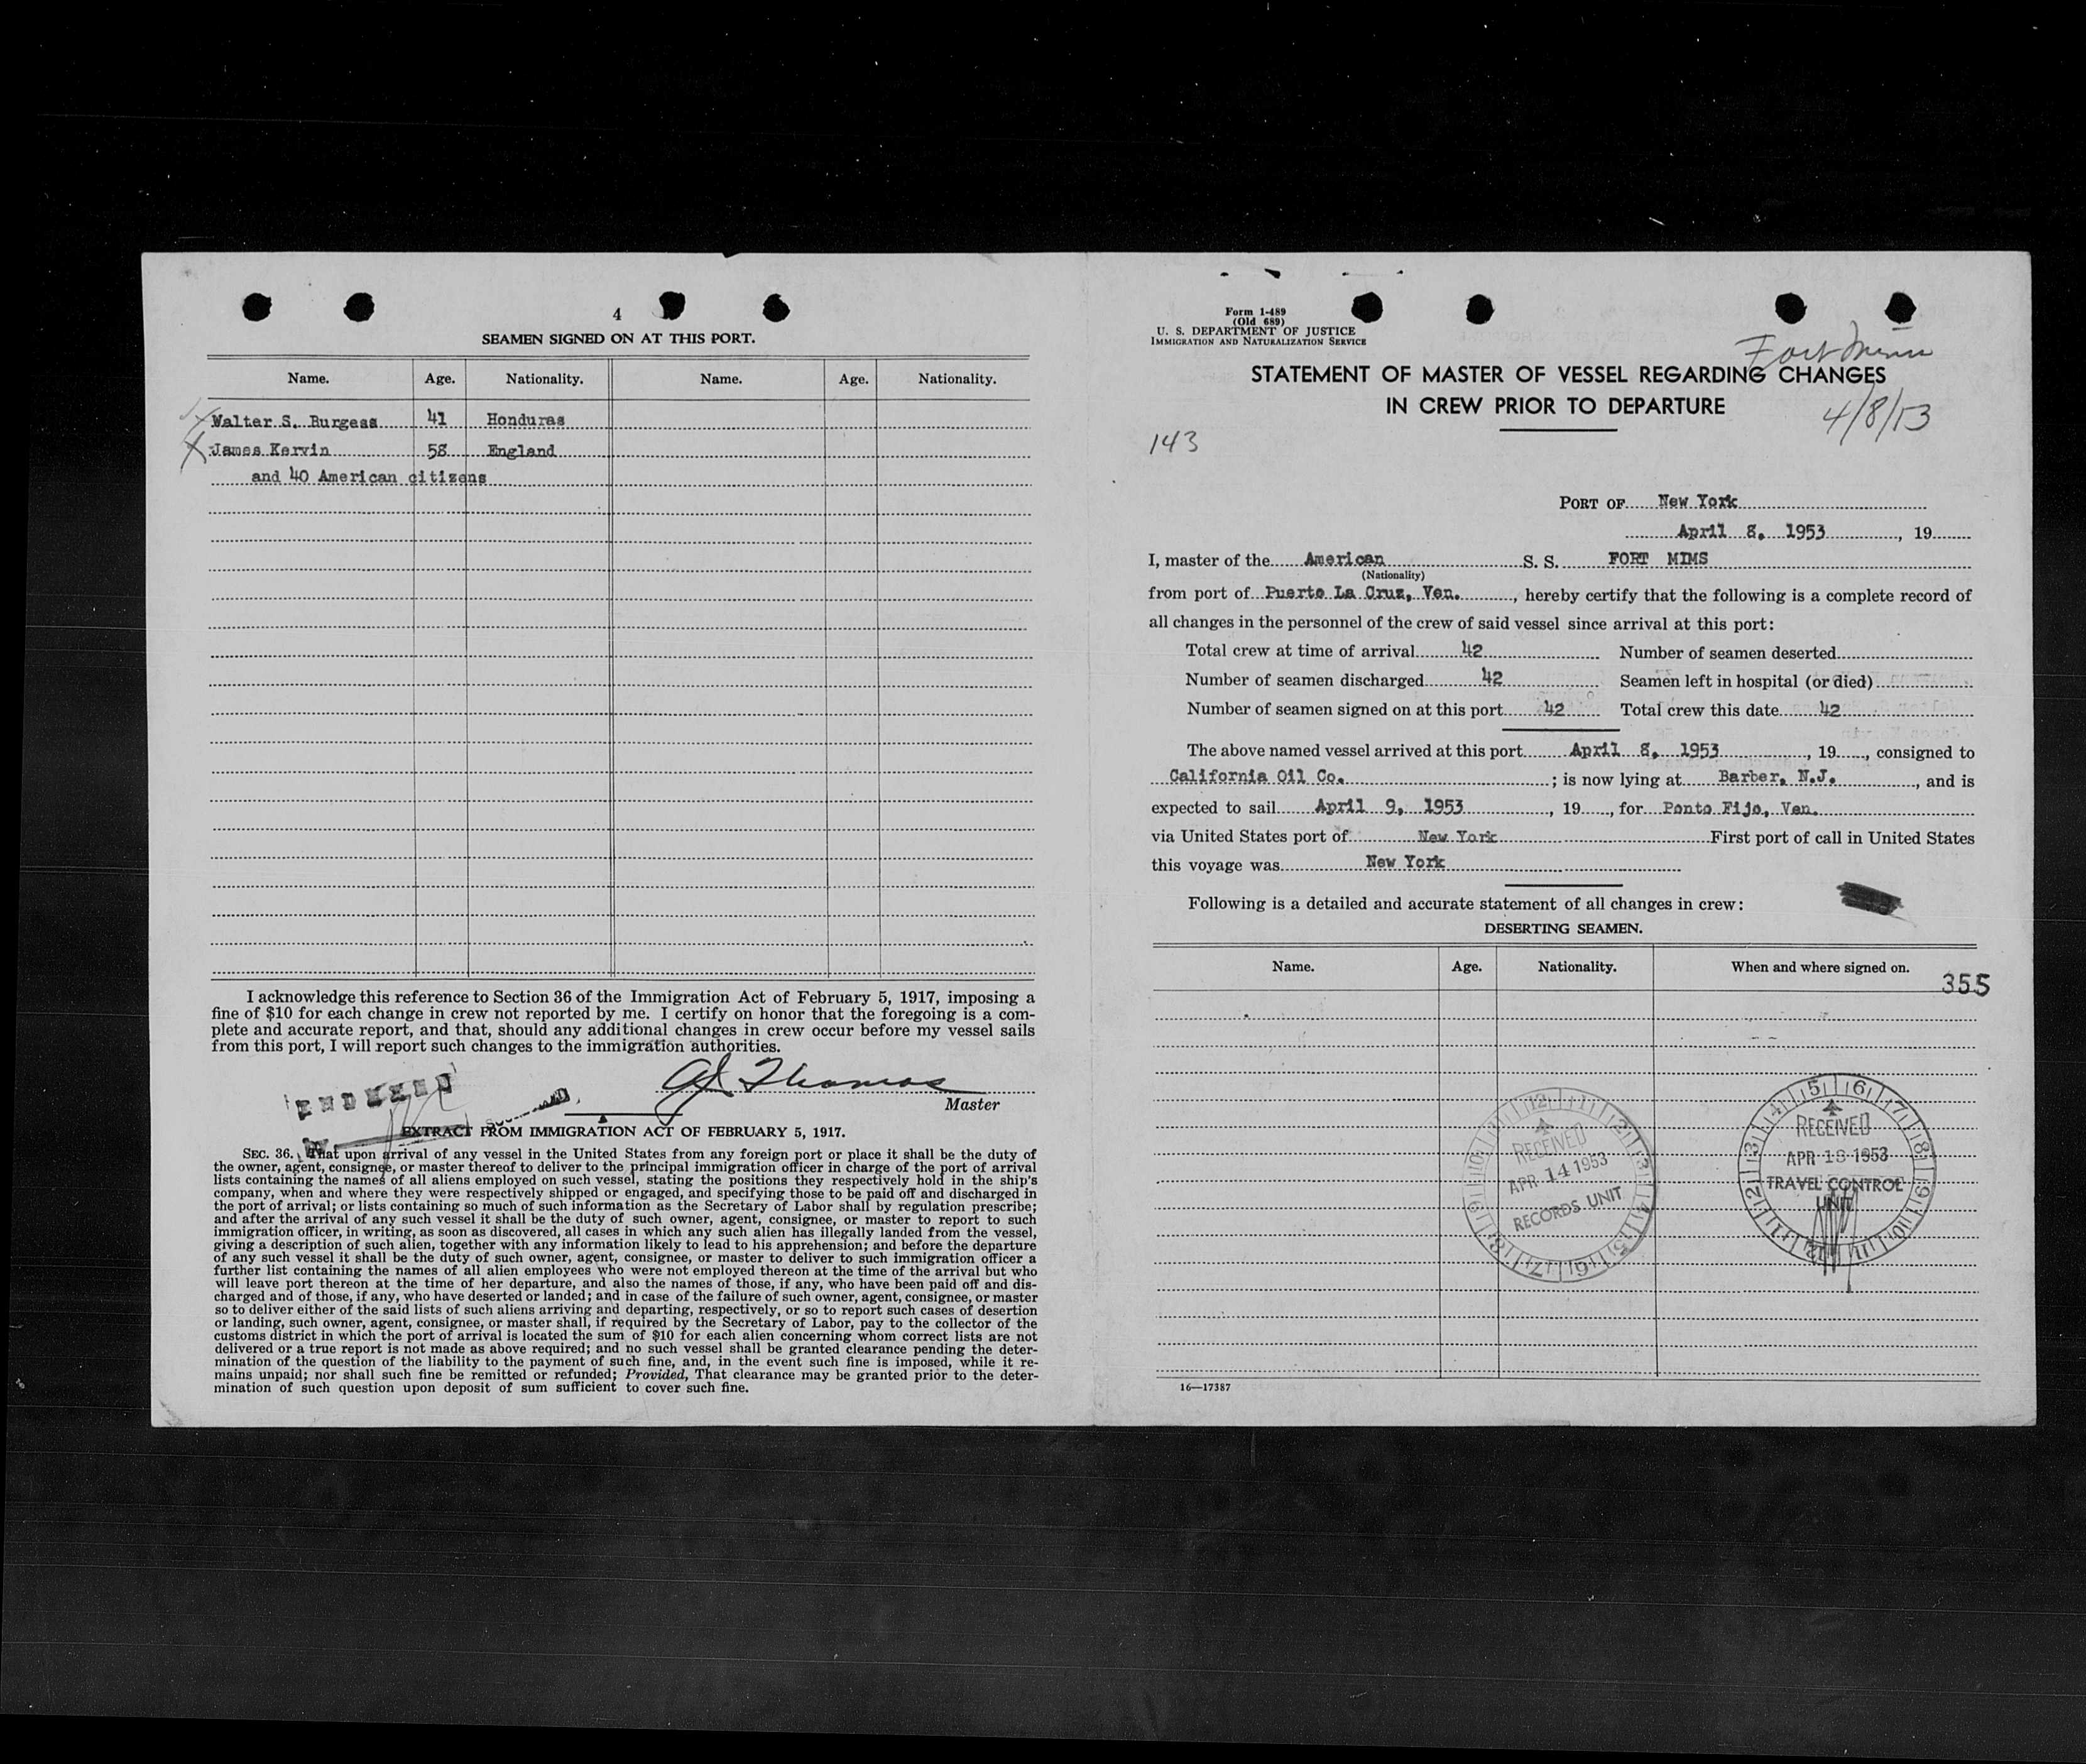 4
SEAMEN SIGNED ON AT THIS PORT.
Name. Age. Nationality. Name. Age. Nationality.
Walter S. Burgess 41 Honduras
James Kervin 58 England
and 40 American citizens
I acknowledge this reference to Section 36 of the Immigration Act of February 5, 1917, imposing a
fine of $10 for each change in crew not reported by me. I certify on honor that the foregoing is a com-
plete and accurate report, and that, should any additional changes in crew occur before my vessel sails
from this port, I will report such changes to the immigration authorities.
Thomas
Master
EXTRACT FROM IMMIGRATION ACT OF FEBRUARY 5, 1917.
SEC. 36. That upon arrival of any vessel in the United States from any foreign port or place it shall be the duty of
the owner, agent, consignee, or master thereof to deliver to the principal immigration officer in charge of the port of arrival
lists containing the names of all aliens employed on such vessel, stating the positions they respectively hold in the ship's
company, when and where they were respectively shipped or engaged, and specifying those to be paid off and discharged in
the port of arrival; or lists containing so much of such information as the Secretary of Labor shall by regulation prescribe;
and after the arrival of any such vessel it shall be the duty of such owner, agent, consignee, or master to report to such
immigration officer, in writing, as soon as discovered, all cases in which any such alien has illegally landed from the vessel,
giving a description of such alien, together with any information likely to lead to his apprehension; and before the departure
of any such vessel it shall be the duty of such owner, agent, consignee, or master to deliver to such immigration officer a
further list containing the names of all alien employees who were not employed thereon at the time of the arrival but who
will leave port thereon at the time of her departure, and also the names of those, if any, who have been paid off and dis-
charged and of those, if any, who have deserted or landed; and in case of the failure of such owner, agent, consignee, or master
so to deliver either of the said lists of such aliens arriving and departing, respectively, or so to report such cases of desertion
or landing, such owner, agent, consignee, or master shall, if required by the Secretary of Labor, pay to the collector of the
customs district in which the port of arrival is located the sum of $10 for each alien concerning whom correct lists are not
delivered or a true report is not made as above required; and no such vessel shall be granted clearance pending the deter-
mination of the question of the liability to the payment of such fine, and, in the event such fine is imposed, while it re-
mains unpaid; nor shall such fine be remitted or refunded; Provided, That clearance may be granted prior to the deter-
mination of such question upon deposit of sum sufficient to cover such fine.
Form I-489
(Old 689)
U. S. DEPARTMENT OF JUSTICE
IMMIGRATION AND NATURALIZATION SERVICE
Fort Mims
STATEMENT OF MASTER OF VESSEL REGARDING CHANGES
IN CREW PRIOR TO DEPARTURE
4/8/53
143
PORT OF New York
April 8, 1953, 19
I, master of the American S. S. FORT MIMS
(Nationality)
from port of Puerto La Cruz, Ven., hereby certify that the following is a complete record of
all changes in the personnel of the crew of said vessel since arrival at this port:
Total crew at time of arrival 42 Number of seamen deserted
Number of seamen discharged 42 Seamen left in hospital (or died)
Number of seamen signed on at this port 42 Total crew this date 42
The above named vessel arrived at this port April 8, 1953, 19, consigned to
California Oil Co. ; is now lying at Barber, N.J., and is
expected to sail April 9, 1953, 19, for Ponto Fijo, Ven.
via United States port of New York First port of call in United States
this voyage was New York
Following is a detailed and accurate statement of all changes in crew:
DESERTING SEAMEN.
Name. Age. Nationality. When and where signed on.
355
RECEIVED
APR 14 1953
RECORDS UNIT
RECEIVED
APR 13 1953
TRAVEL CONTROL
UNIT
16—17387